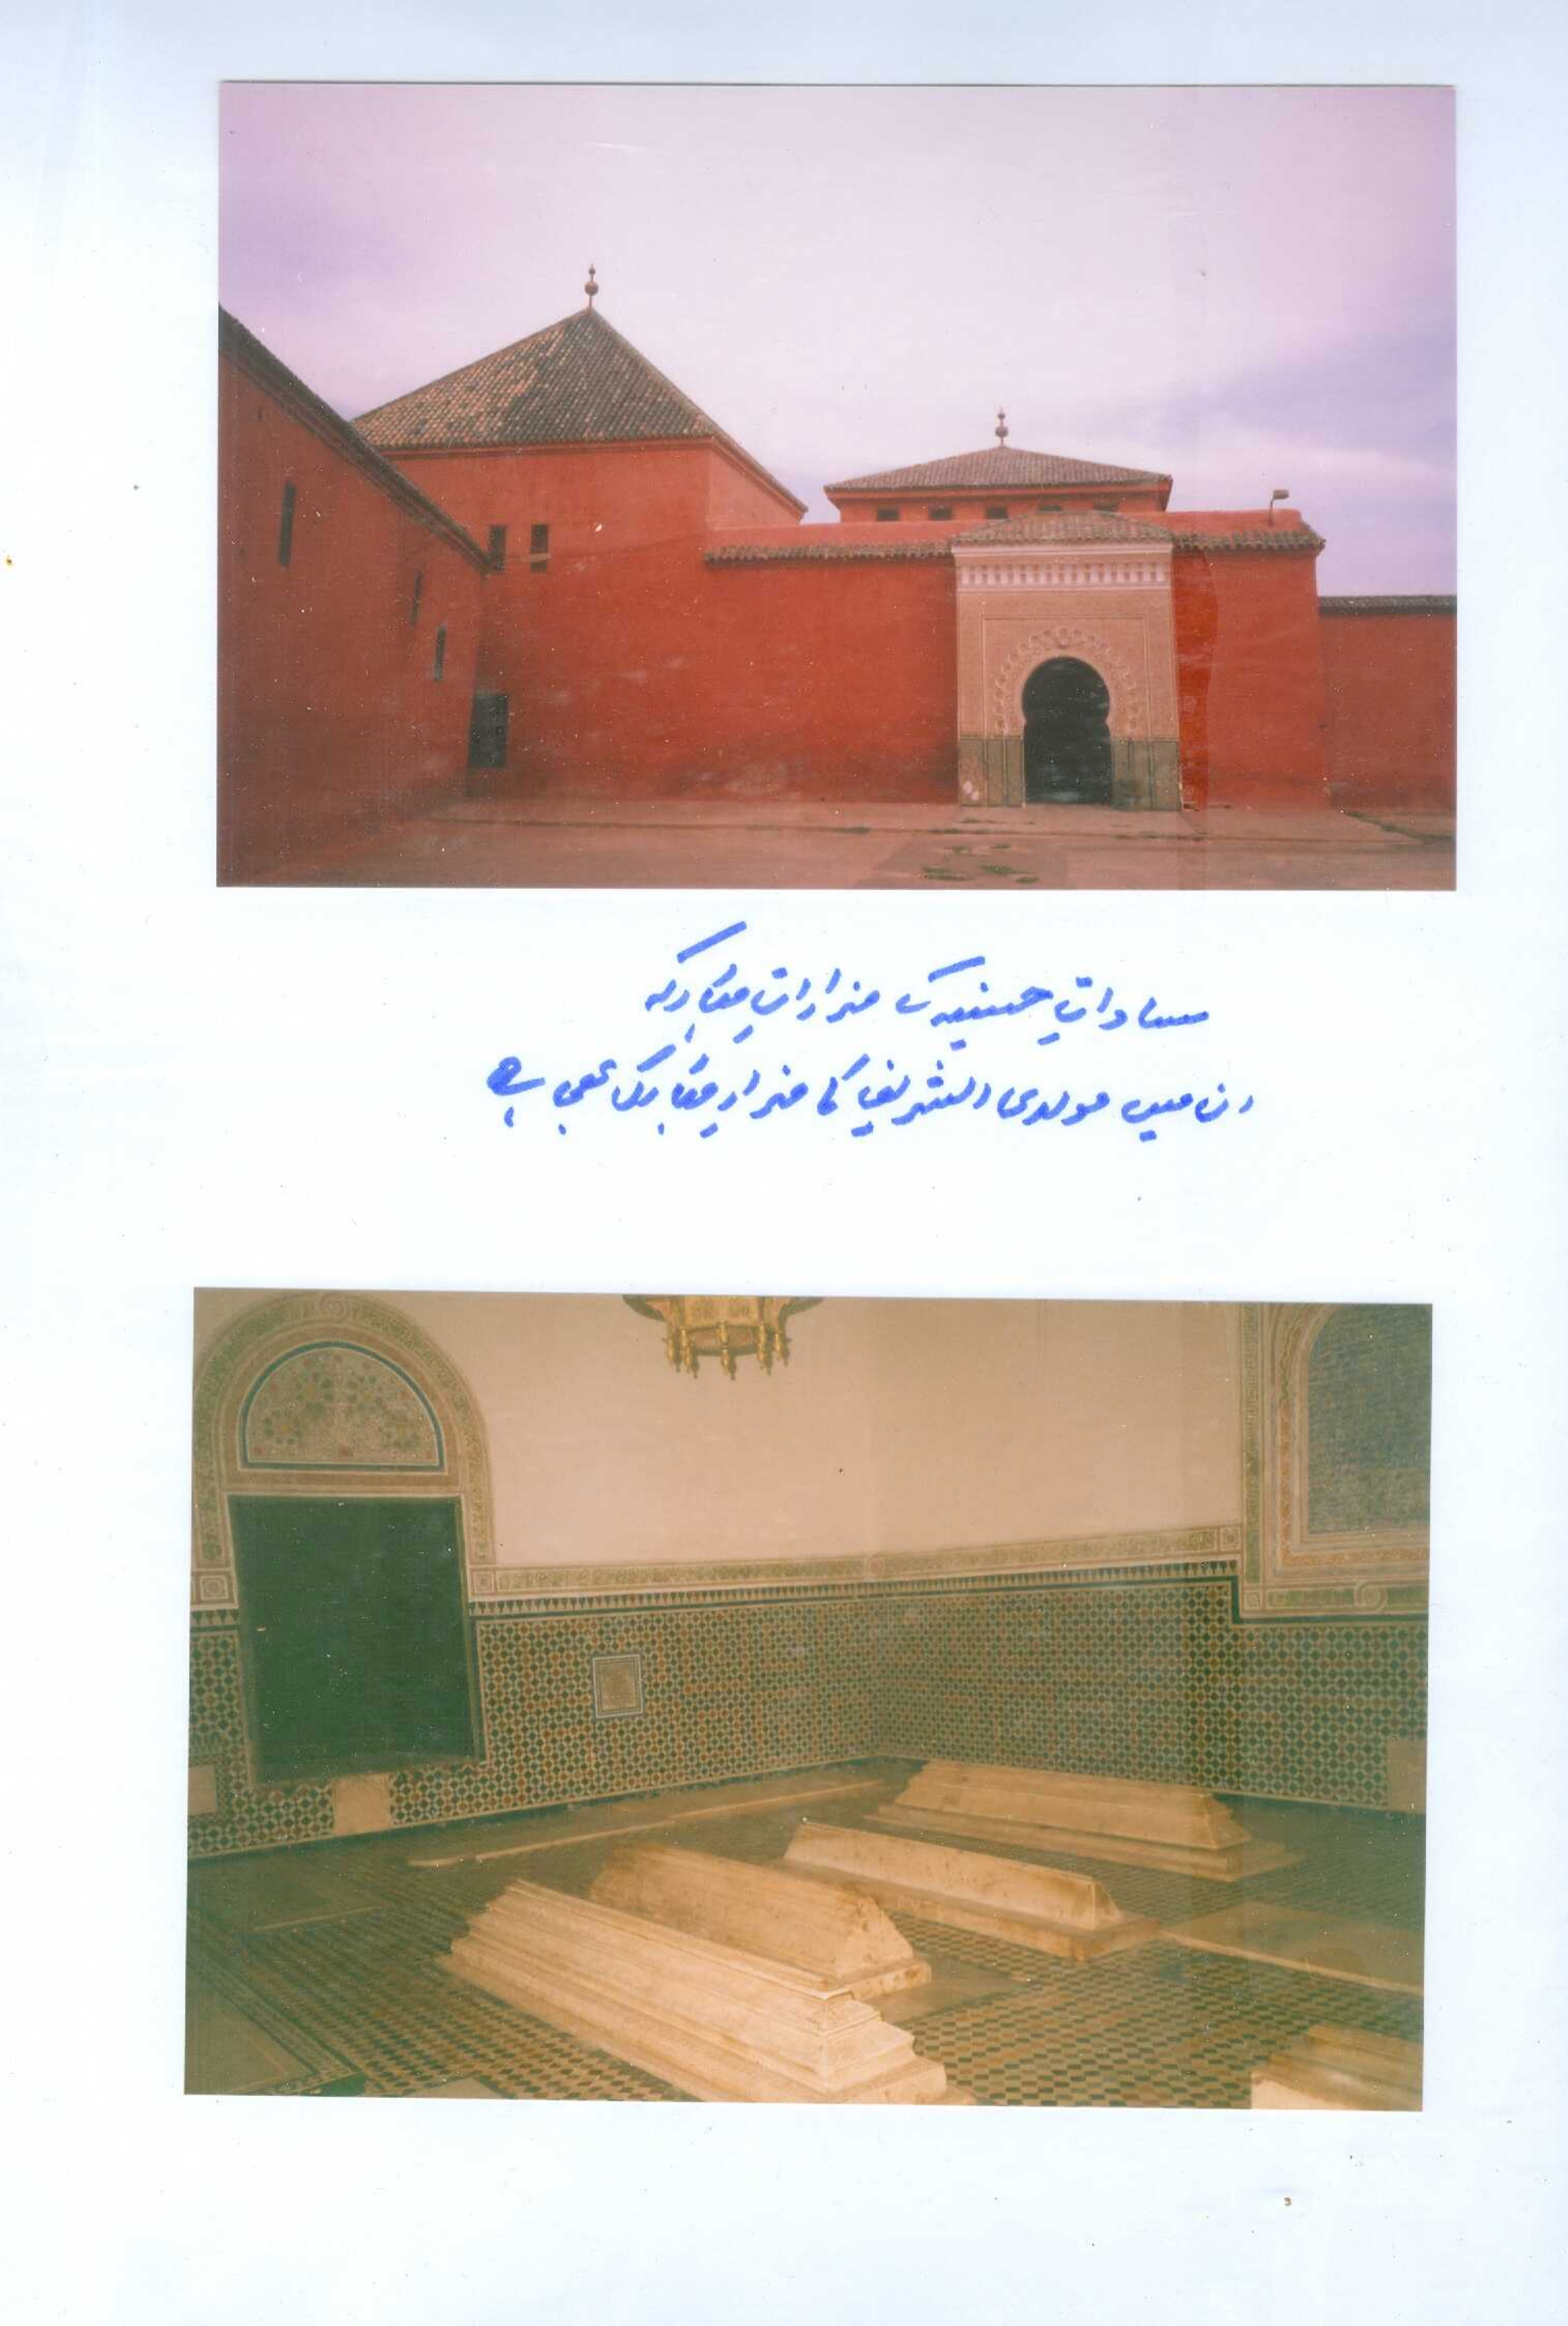 ساداتِ حسنیہ کے مزاراتِ مبارکہ
ان میں مولای الشریف کا مزارِ مبارک بھی ہے